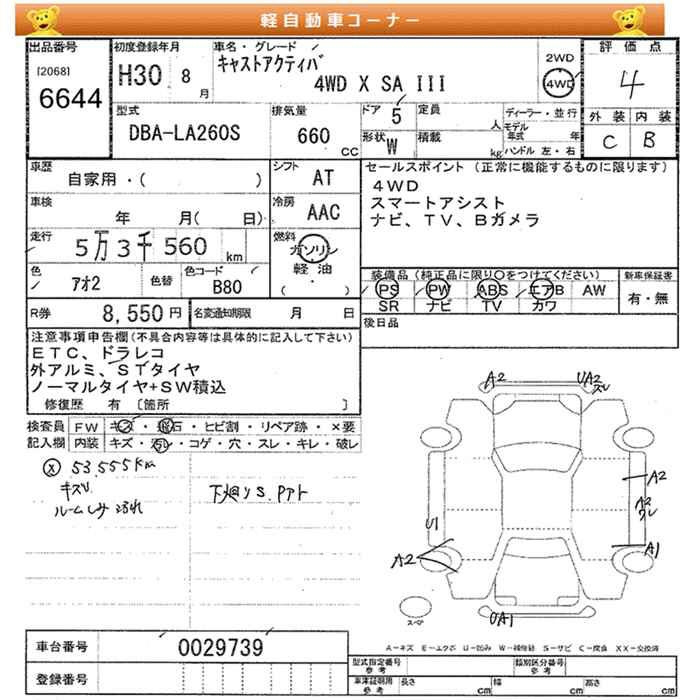 軽自動車コーナー
出品番号
[2068]
6644
初度登録年月
H30 8月
車名・グレード
キャストアクティバ
4WD X SA III
2WD
4WD
評価点
4
外装 内装
C B
型式
DBA-LA260S
排気量
660 CC
ドア 5
定員 人
形状 W
積載 kg
ディーラー・並行
モデル年式 年
ハンドル 左・右
車歴
自家用・( )
シフト AT
車検
年 月( 日)
冷房 AAC
走行
5万3千560 km
燃料
ガソリン
軽油
( )
色 アオ2
色替
色コード B80
R券 8,550円
名変通知期限 月 日
セールスポイント (正常に機能するものに限ります)
4WD
スマートアシスト
ナビ、TV、Bカメラ
装備品 (純正品に限り○をつけてください)
PS PW ABS エアB AW
SR ナビ TV カワ
新車保証書
有・無
後日品
注意事項申告欄(不具合内容等は具体的に記入して下さい)
ETC、ドラレコ
外アルミ、STタイヤ
ノーマルタイヤ+SW積込
修復歴 有 〔箇所 〕
検査員記入欄
FW キズ・飛石・ヒビ割・リペア跡・×要
内装 キズ・汚レ・コゲ・穴・スレ・キレ・破レ
ⓧ 53,555km
キズU
ルームレサ汚れ
下廻りS.Pアト
A2
UA2
スレ
A2
A2
ワレ
U1
A2
A1
UA1
スペア
A-キズ E-エクボ U-凹み W-補修跡 S-サビ C-腐食 XX-交換済
車台番号 0029739
登録番号
型式指定番号 参考
類別区分番号 参考
車庫証明用 参考
長さ cm
幅 cm
高さ cm